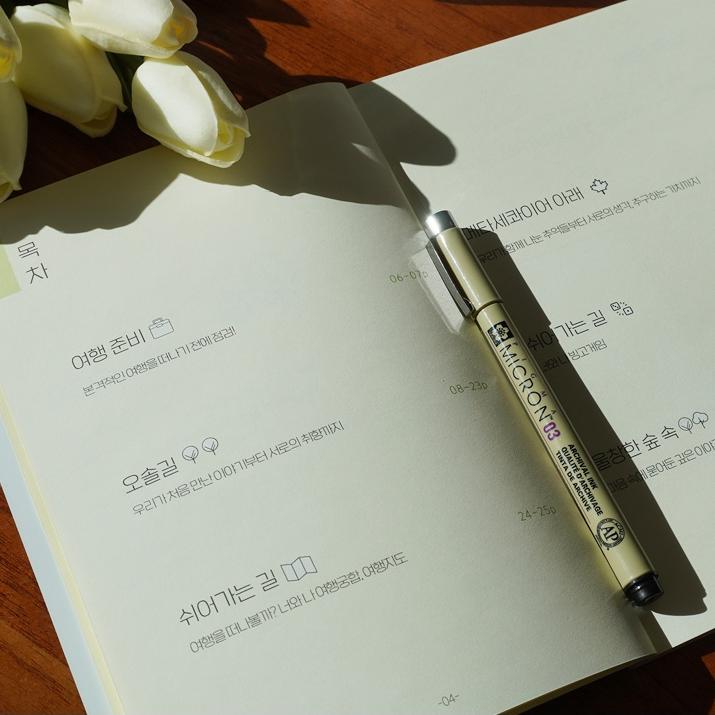 목
차
여행 준비
본격적인 여행을 떠나기 전에 점검!
06-07p
오솔길
우리가 처음 만난 이야기부터 서로의 취향까지
08-23p
쉬어가는 길
여행을 떠나볼까? 너와 나 여행궁합, 여행지도
24-25p
-04-
메타세콰이어 아래
우리가 함께 나눈 추억들부터 서로의 생각, 추구하는 가치까지
쉬어가는 길
빙고게임
울창한 숲 속
속에 묻어둔 깊은
MICRON 03
ARCHIVAL INK
QUALITÉ D'ARCHIVAGE
TINTA DE ARCHIVE
AP